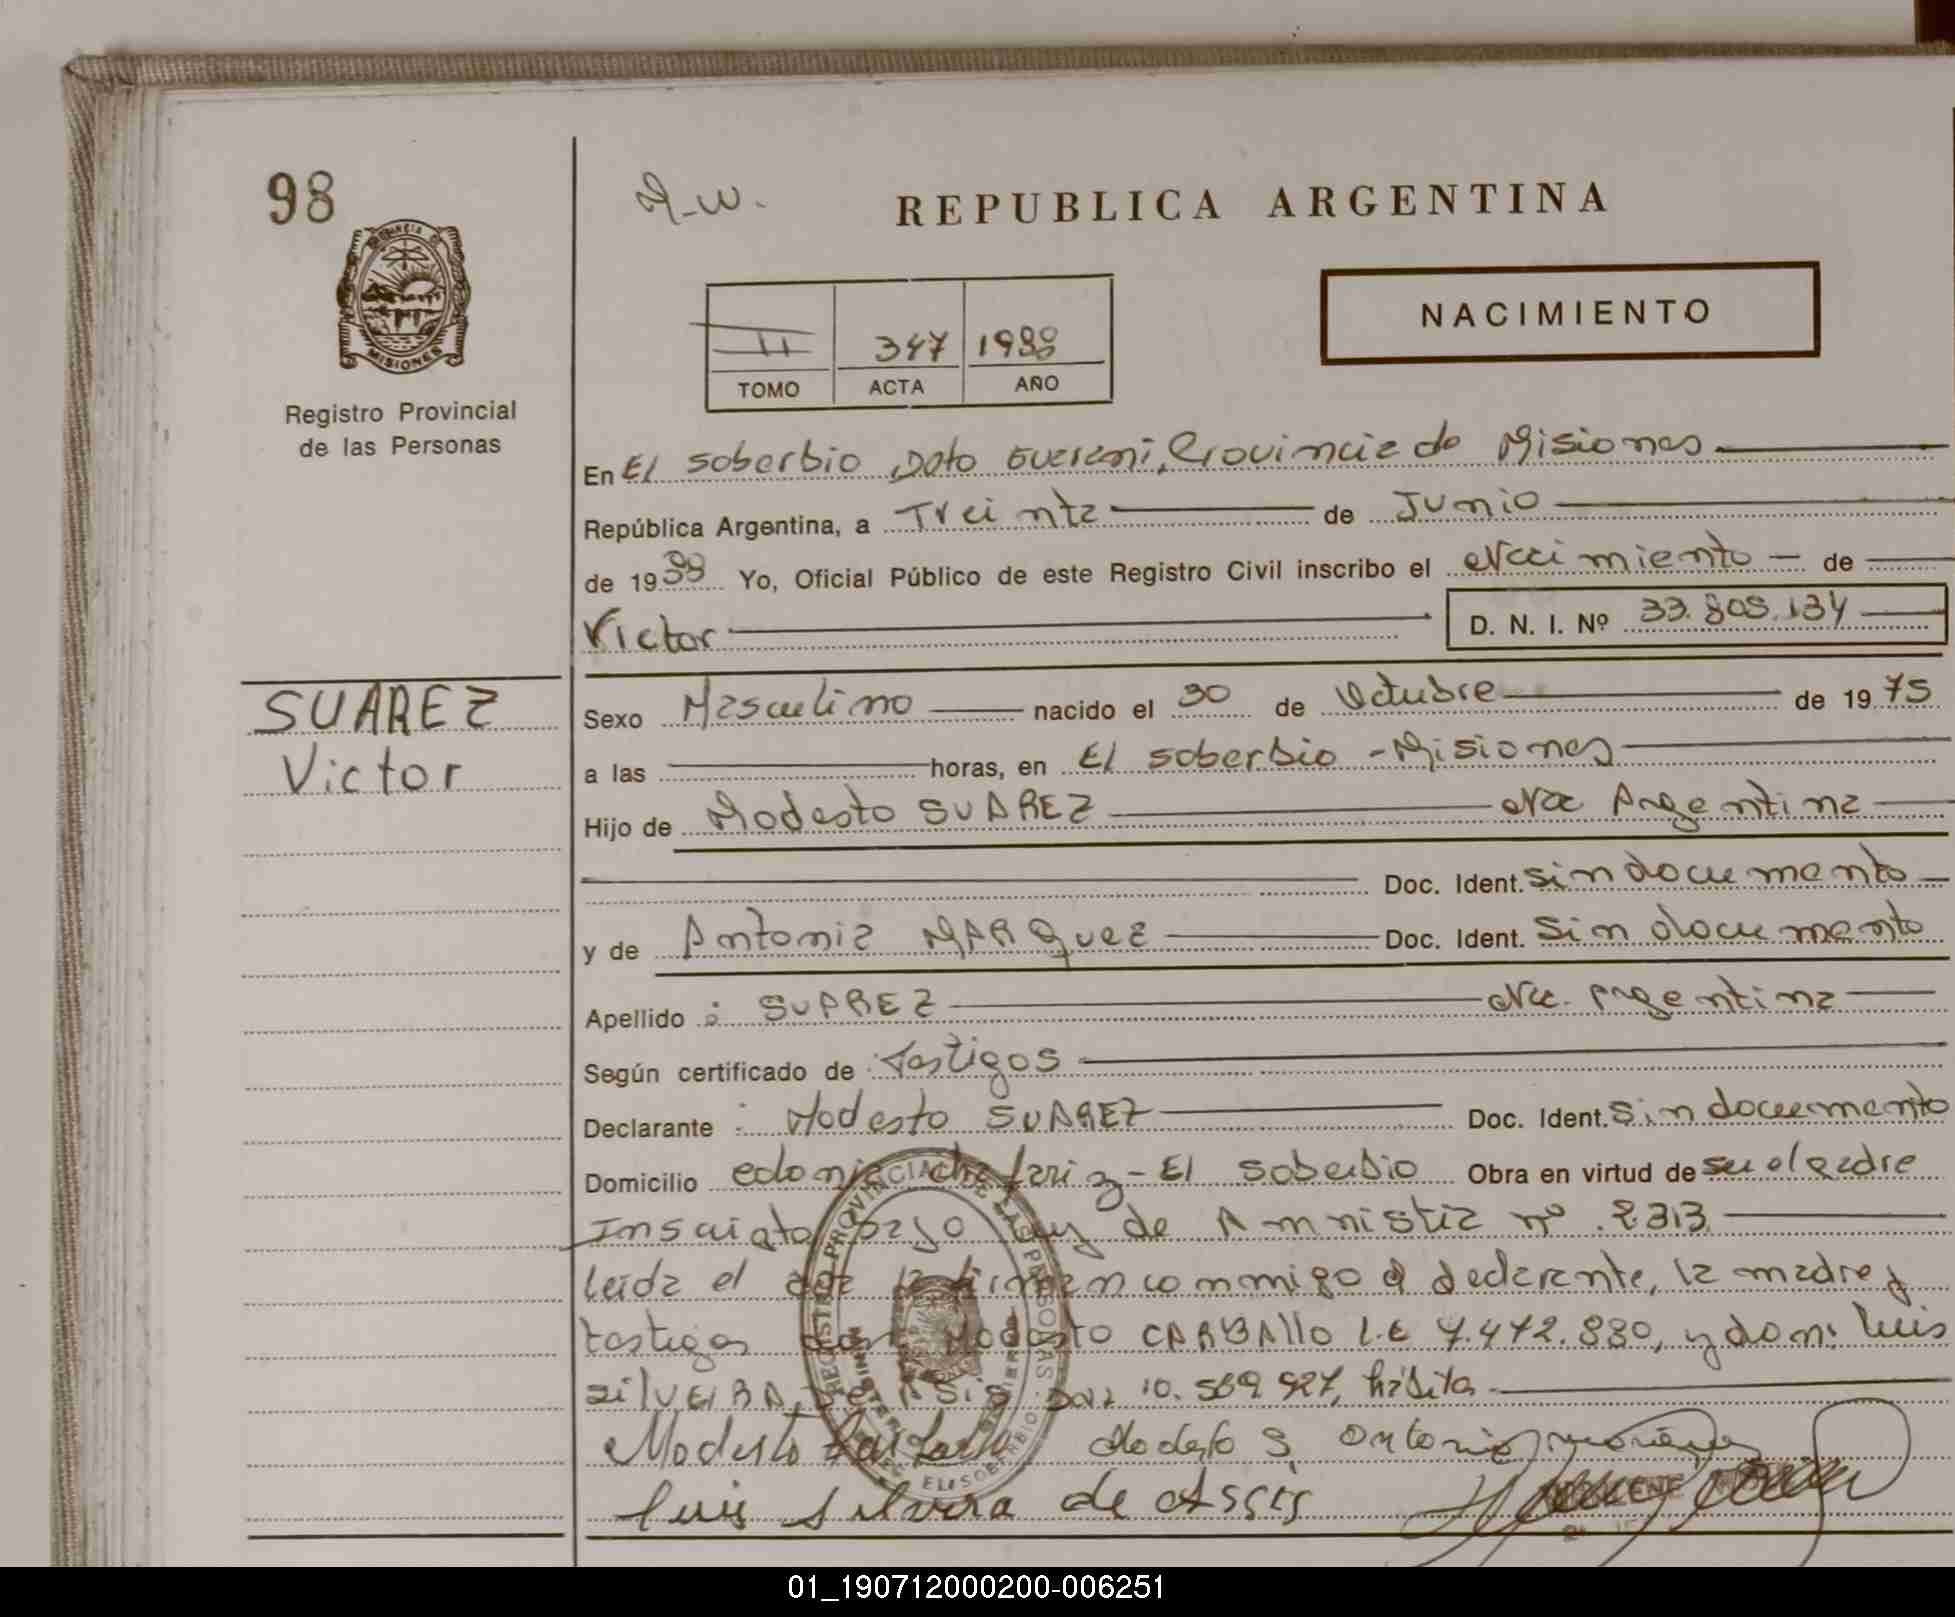 98
M-W.
REPUBLICA ARGENTINA
PROVINCIA DE
MISIONES
Registro Provincial
de las Personas
II 347 1988
TOMO ACTA AÑO
NACIMIENTO
En El Soberbio Dpto Guarani, Provincia de Misiones
República Argentina, a Treinta de Junio
de 1988 Yo, Oficial Público de este Registro Civil inscribo el Nacimiento de
Victor D. N. I. Nº 33.808.134
SUAREZ
Victor
Sexo Masculino nacido el 30 de Octubre de 1975
a las horas, en El Soberbio - Misiones
Hijo de Modesto SUAREZ Nac Argentina
Doc. Ident. Sin documento
y de Antonia MARQUEZ Doc. Ident. Sin documento
Apellido : SUAREZ Nac. Argentina
Según certificado de : Testigos
Declarante : Modesto SUAREZ Doc. Ident. Sin documento
Domicilio colonia - El Soberbio Obra en virtud de su padre
Inscripta bajo Ley de Amnistia nº 2313
leida el acta la firman conmigo el declarante, la madre y
testigos don Modesto CARBALLO L.E 7.472.880, y don: Luis
SilVEIRA, de ASis DNI 10.569.927, habita
Modesto Modesto S Antonia
Luis Silvera de Assis
REGISTRO PROVINCIAL DE LAS PERSONAS
MINISTERIO DE GOBIERNO
EL SOBERBIO
01_190712000200-006251